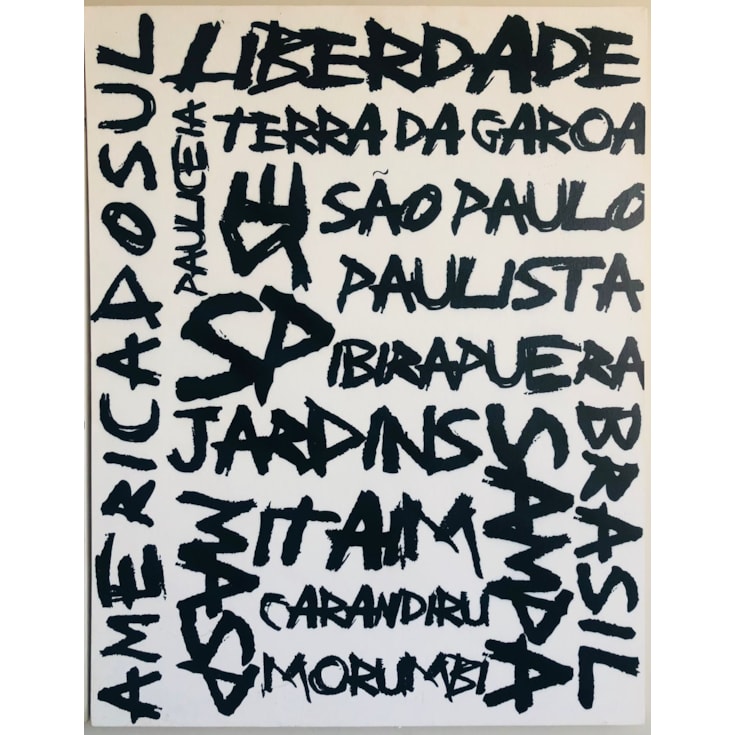 AMERICA DO SUL
LIBERDADE
PAULICEIA
TERRA DA GAROA
SE
SÃO PAULO
PAULISTA
SP
IBIRAPUERA
JARDINS
SAMPA
BRASIL
MASP
ITAIM
CARANDIRU
MORUMBI